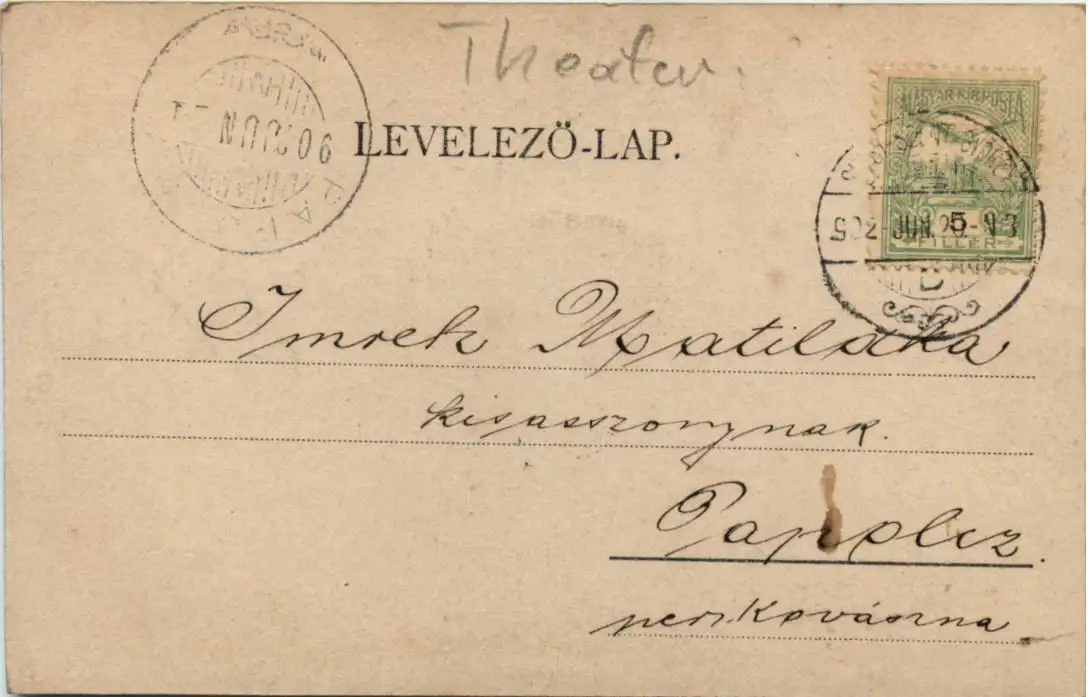 Theater.
LEVELEZŐ-LAP.
MAGYAR KIR. POSTA
5
FILLÉR
902 JUN. 20. N 3
D
902 JUN
Imreh Matildka
kisasszonynak.
Papolcz.
per. Kovászna